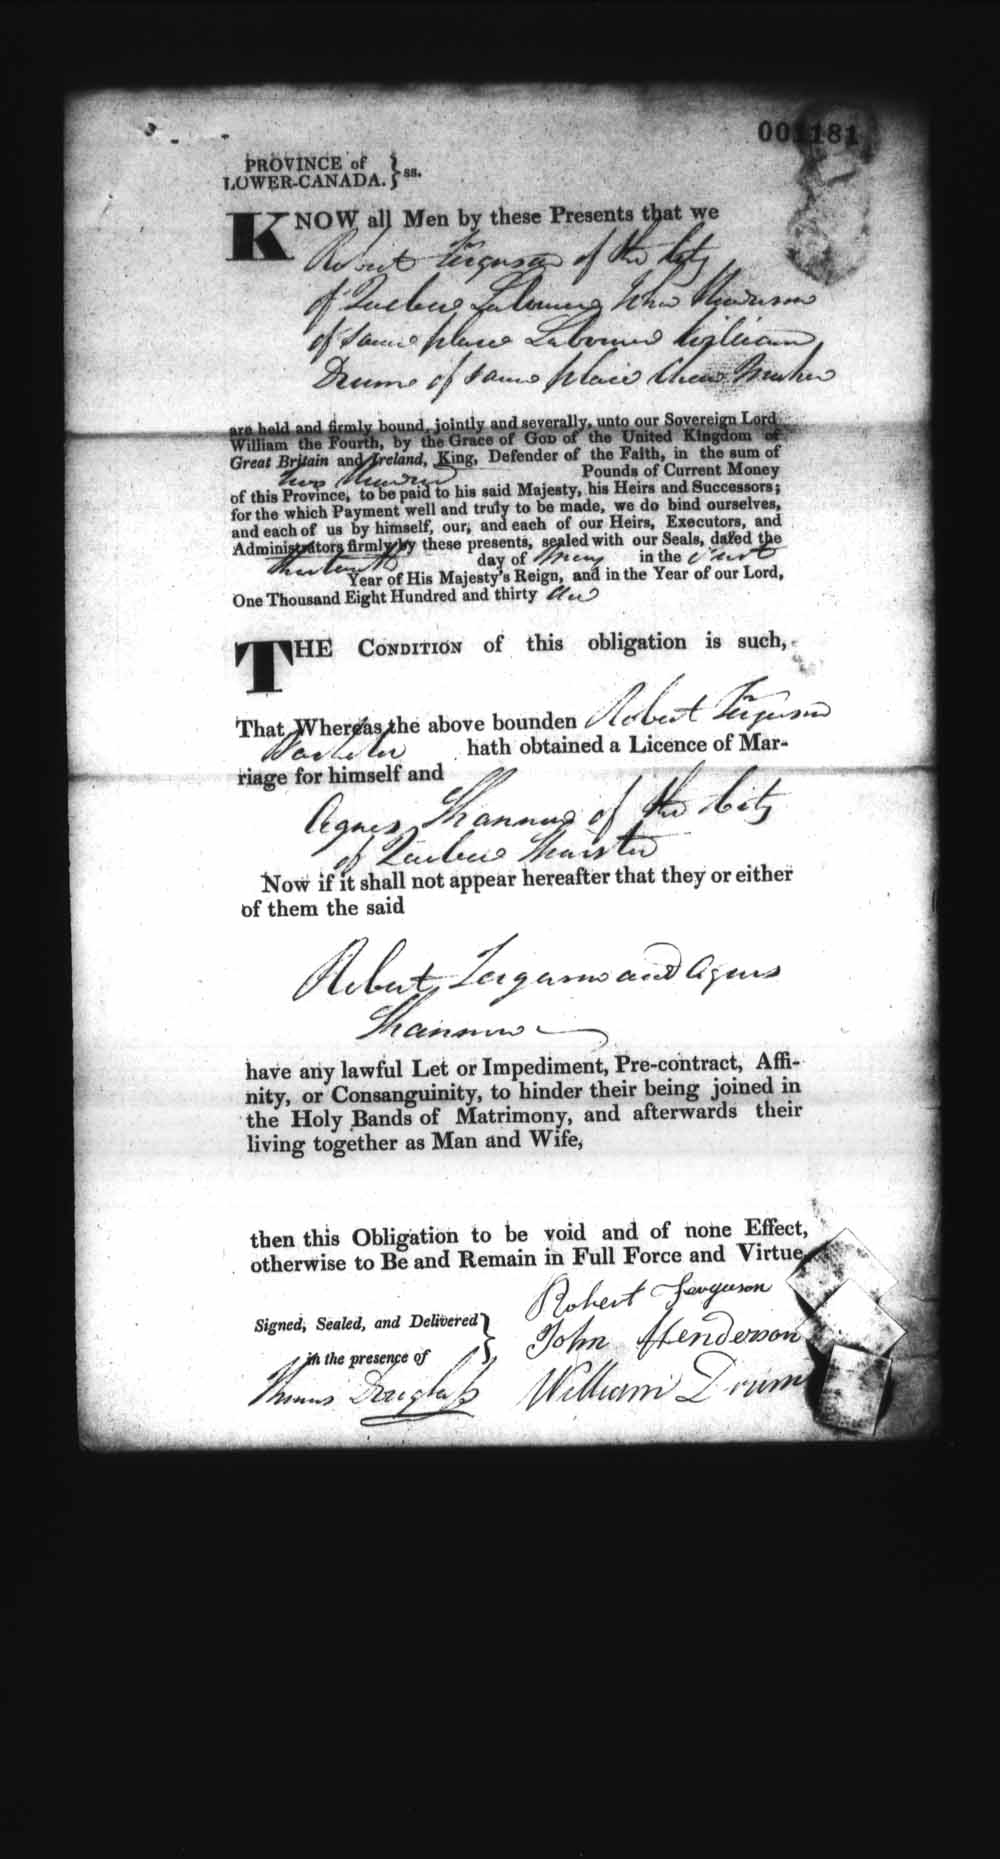 PROVINCE of
LOWER-CANADA. } ss.
KNOW all Men by these Presents that we
Robert Ferguson of the City
of Quebec Labourer John Henderson
of same place Labourer William
Drum of same place Chair Maker
are held and firmly bound, jointly and severally, unto our Sovereign Lord
William the Fourth, by the Grace of GOD of the United Kingdom of
Great Britain and Ireland, King, Defender of the Faith, in the sum of
two Hundred Pounds of Current Money
of this Province, to be paid to his said Majesty, his Heirs and Successors;
for the which Payment well and truly to be made, we do bind ourselves,
and each of us by himself, our, and each of our Heirs, Executors, and
Administrators firmly by these presents, sealed with our Seals, dated the
thirteenth day of May in the first
Year of His Majesty's Reign, and in the Year of our Lord,
One Thousand Eight Hundred and thirty one
THE CONDITION of this obligation is such,
That Whereas the above bounden Robert Ferguson
Bachelor hath obtained a Licence of Mar-
riage for himself and
Agnes Shannon of the City
of Quebec Spinster
Now if it shall not appear hereafter that they or either
of them the said
Robert Ferguson and Agnes
Shannon
have any lawful Let or Impediment, Pre-contract, Affi-
nity, or Consanguinity, to hinder their being joined in
the Holy Bands of Matrimony, and afterwards their
living together as Man and Wife,
then this Obligation to be void and of none Effect,
otherwise to Be and Remain in Full Force and Virtue.
Robert Ferguson
Signed, Sealed, and Delivered }
John Henderson
in the presence of
Thomas Douglass
William Drum